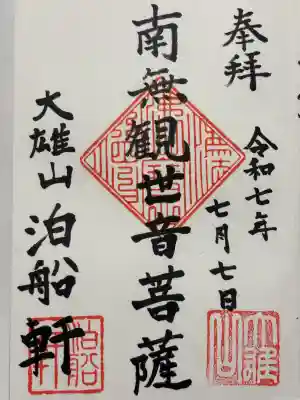 奉拝
令和七年
七月七日
南無観世音菩薩
大雄山
泊船軒